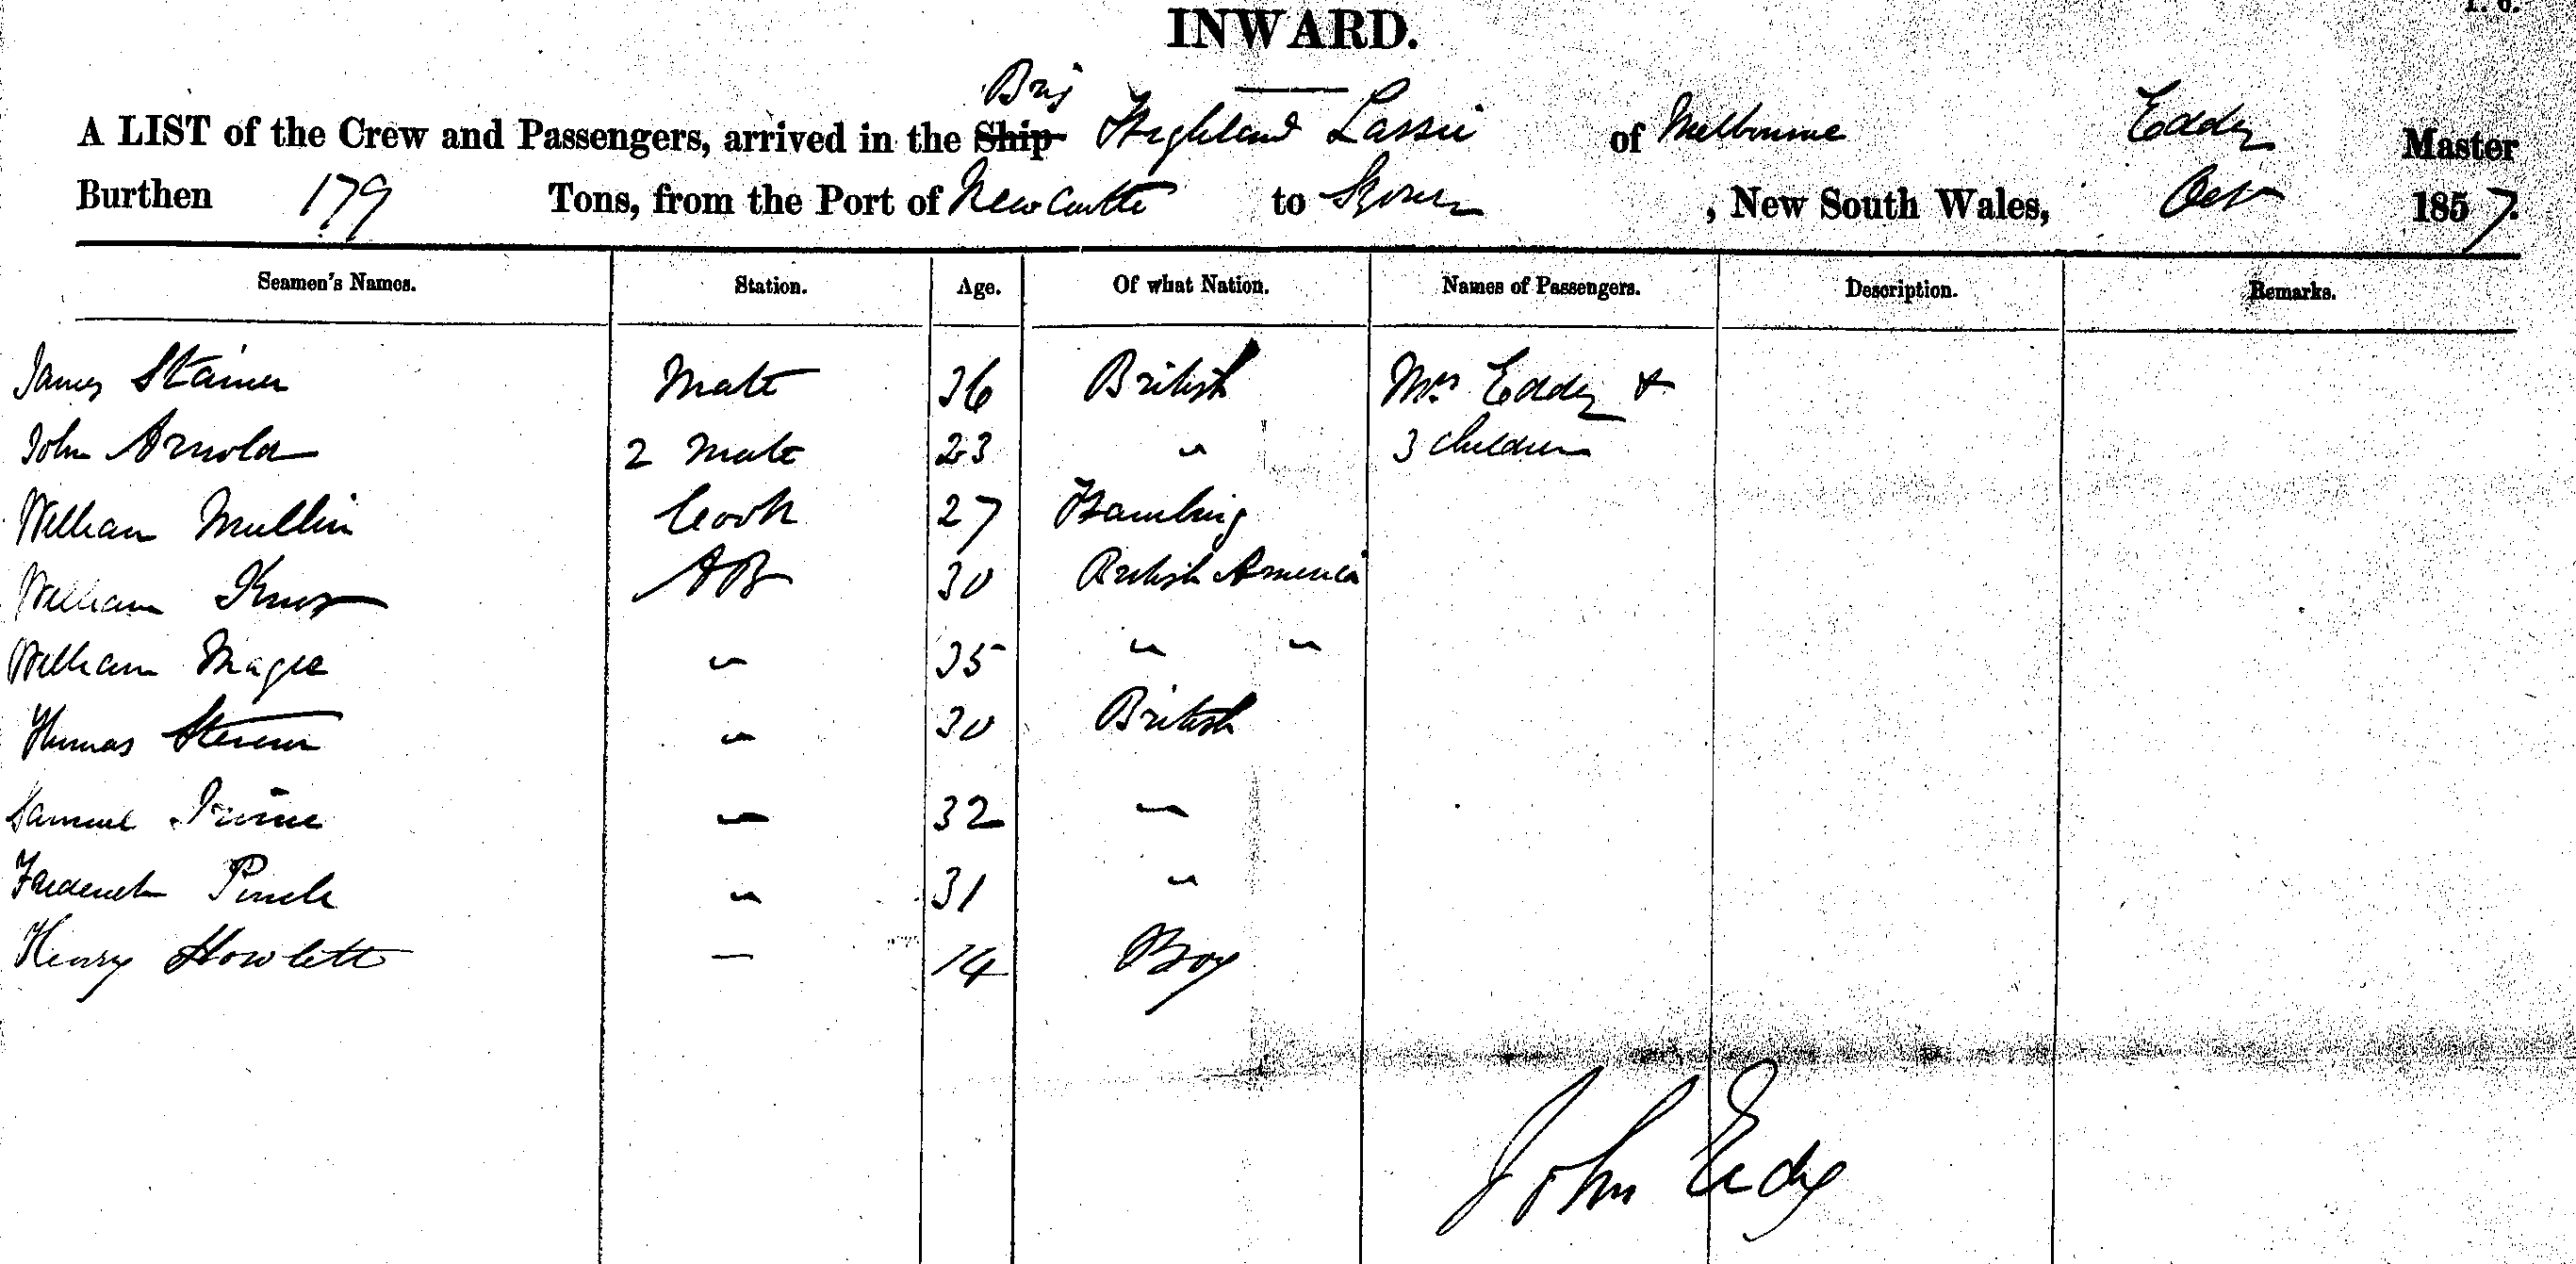 INWARD.
Brig
A LIST of the Crew and Passengers, arrived in the Ship Highland Lassie of Melbourne Eddy Master
Burthen 179 Tons, from the Port of Newcastle to Sydney, New South Wales, Oct 1857.
Seamen's Names. Station. Age. Of what Nation. Names of Passengers. Description. Remarks.
James Stainer Mate 36 British Mrs Eddy &
John Arnold 2 Mate 23 " 3 children
William Mullin Cook 27 Hamburg
William Knox AB 30 British America
William Magee " 35 " "
Thomas Steven " 30 British
Samuel Irvine " 32 "
Frederick Pinch " 31 "
Henry Howlett — 14 Boy
John Eddy